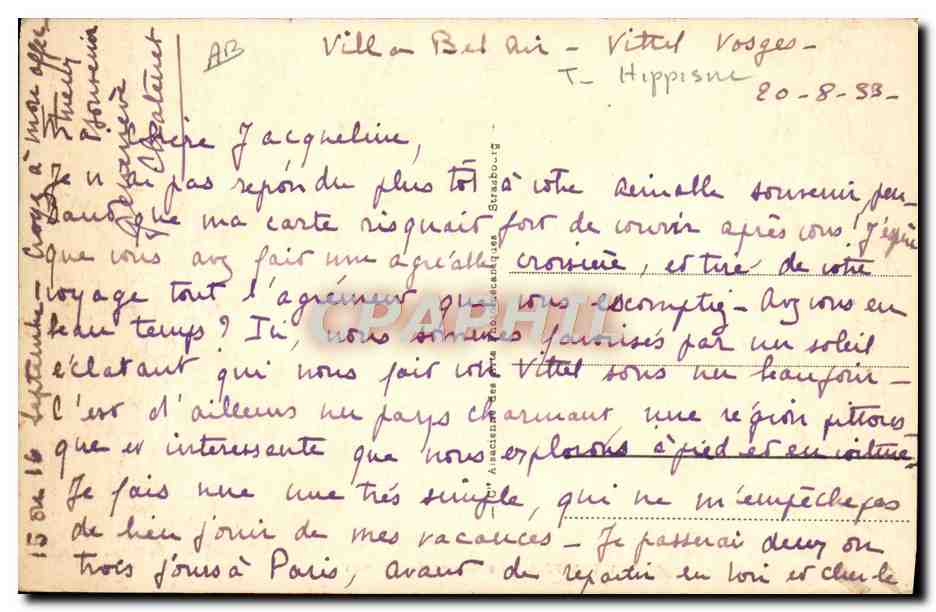 AB
Villa Bel Air - Vittel Vosges -
T- Hippisme
20-8-33-
Chère Jacqueline,
Je n'ai pas répondu plus tôt à votre aimable souvenir, pen-
sant que ma carte risquait fort de courir après vous. J'espère
que vous avez fait une agréable croisière, et tiré de votre
voyage tout l'agrément que vous escomptiez - Avez vous eu
beau temps? Ici, nous sommes favorisés par un soleil
éclatant qui nous fait voir Vittel sous un beau jour -
C'est d'ailleurs un pays charmant une région pittores
que et intéressante que nous explorons à pied et en voiture
Je fais une cure très simple, qui ne m'empêche pas
de bien jouir de mes vacances - Je passerai deux ou
trois jours à Paris, avant de repartir en Loir et Cher le
15 ou 16 septembre - Croyez à mon affec
tueux
souvenir
Geneviève
CPAPHIL
Cie Alsacienne des Arts Photomécaniques Strasbourg